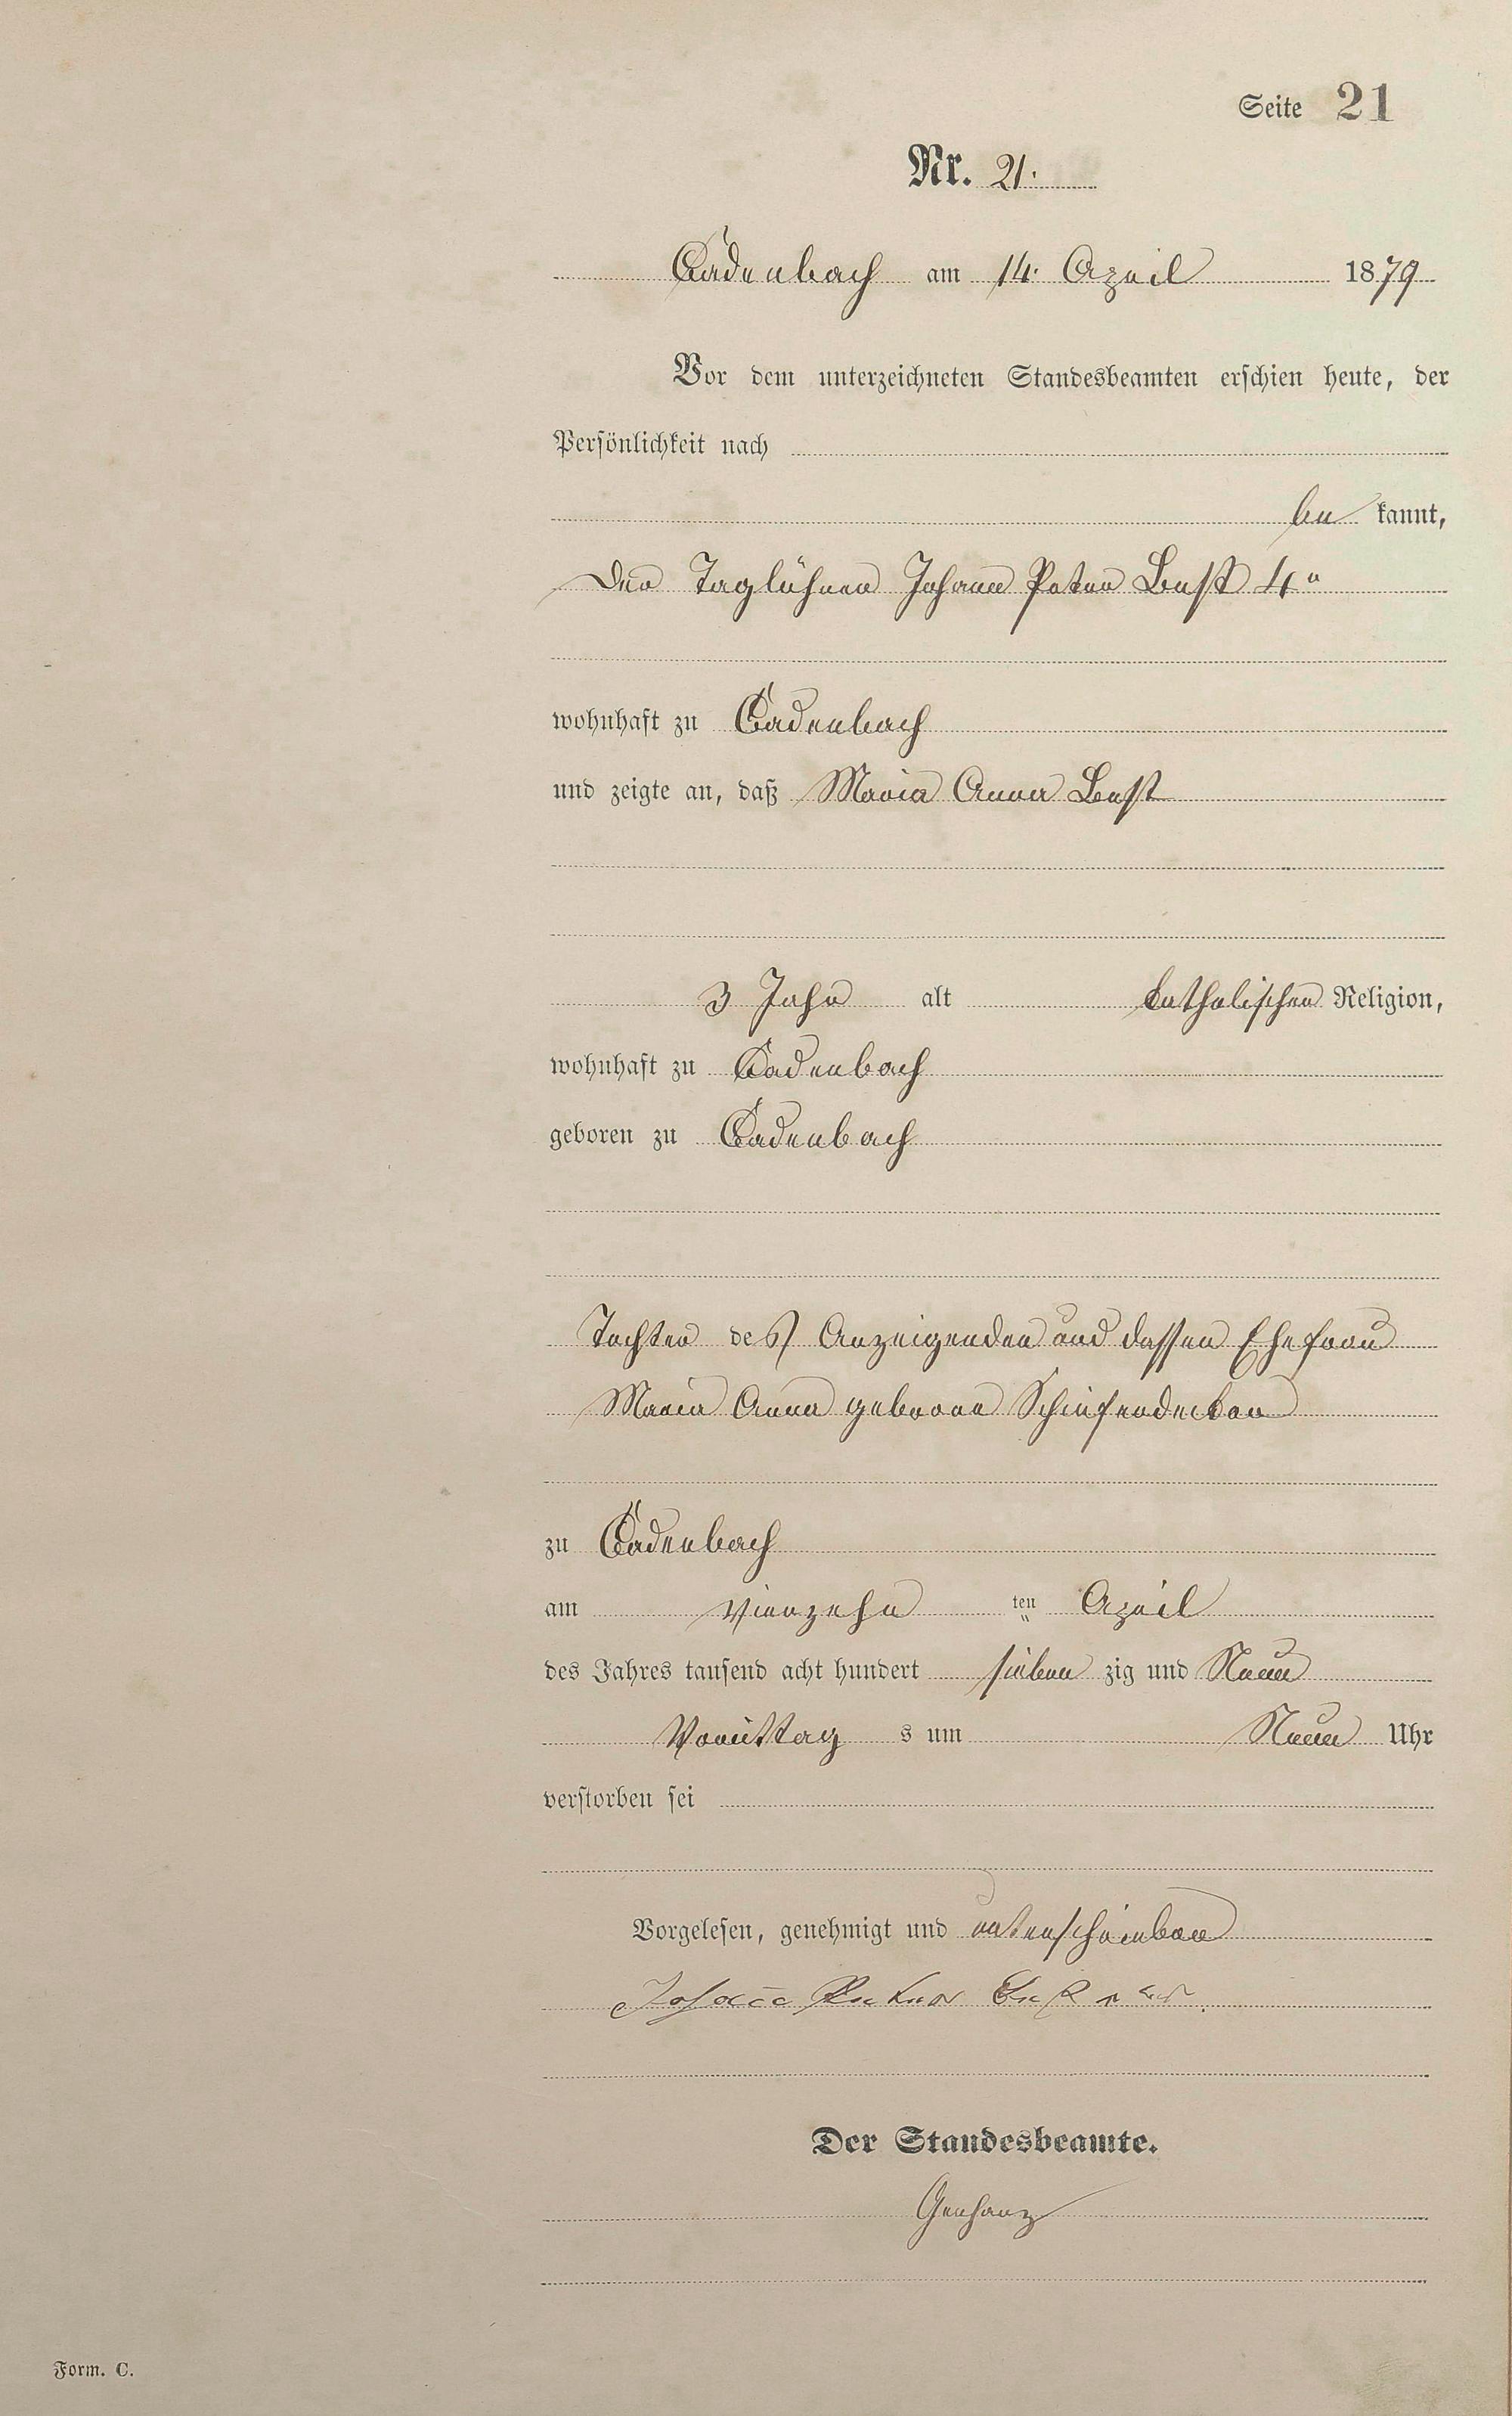 Seite 21
Nr. 21.
Cadenbach am 14. April 1879
Vor dem unterzeichneten Standesbeamten erschien heute, der
Persönlichkeit nach
be kannt,
Der Taglöhner Johann Peter Best 4r
wohnhaft zu Cadenbach
und zeigte an, daß Maria Anna Best
3 Jahr alt katholischer Religion,
wohnhaft zu Cadenbach
geboren zu Cadenbach
Tochter des Anzeigenden und dessen Ehefrau
Maria Anna geborne
zu Cadenbach
am vierzehn ten April
des Jahres tausend acht hundert sieben zig und Neun
Vormittag s um Neun Uhr
verstorben sei
Vorgelesen, genehmigt und unterschrieben
Johann Peter Best
Der Standesbeamte.
Gerharz
Form. C.